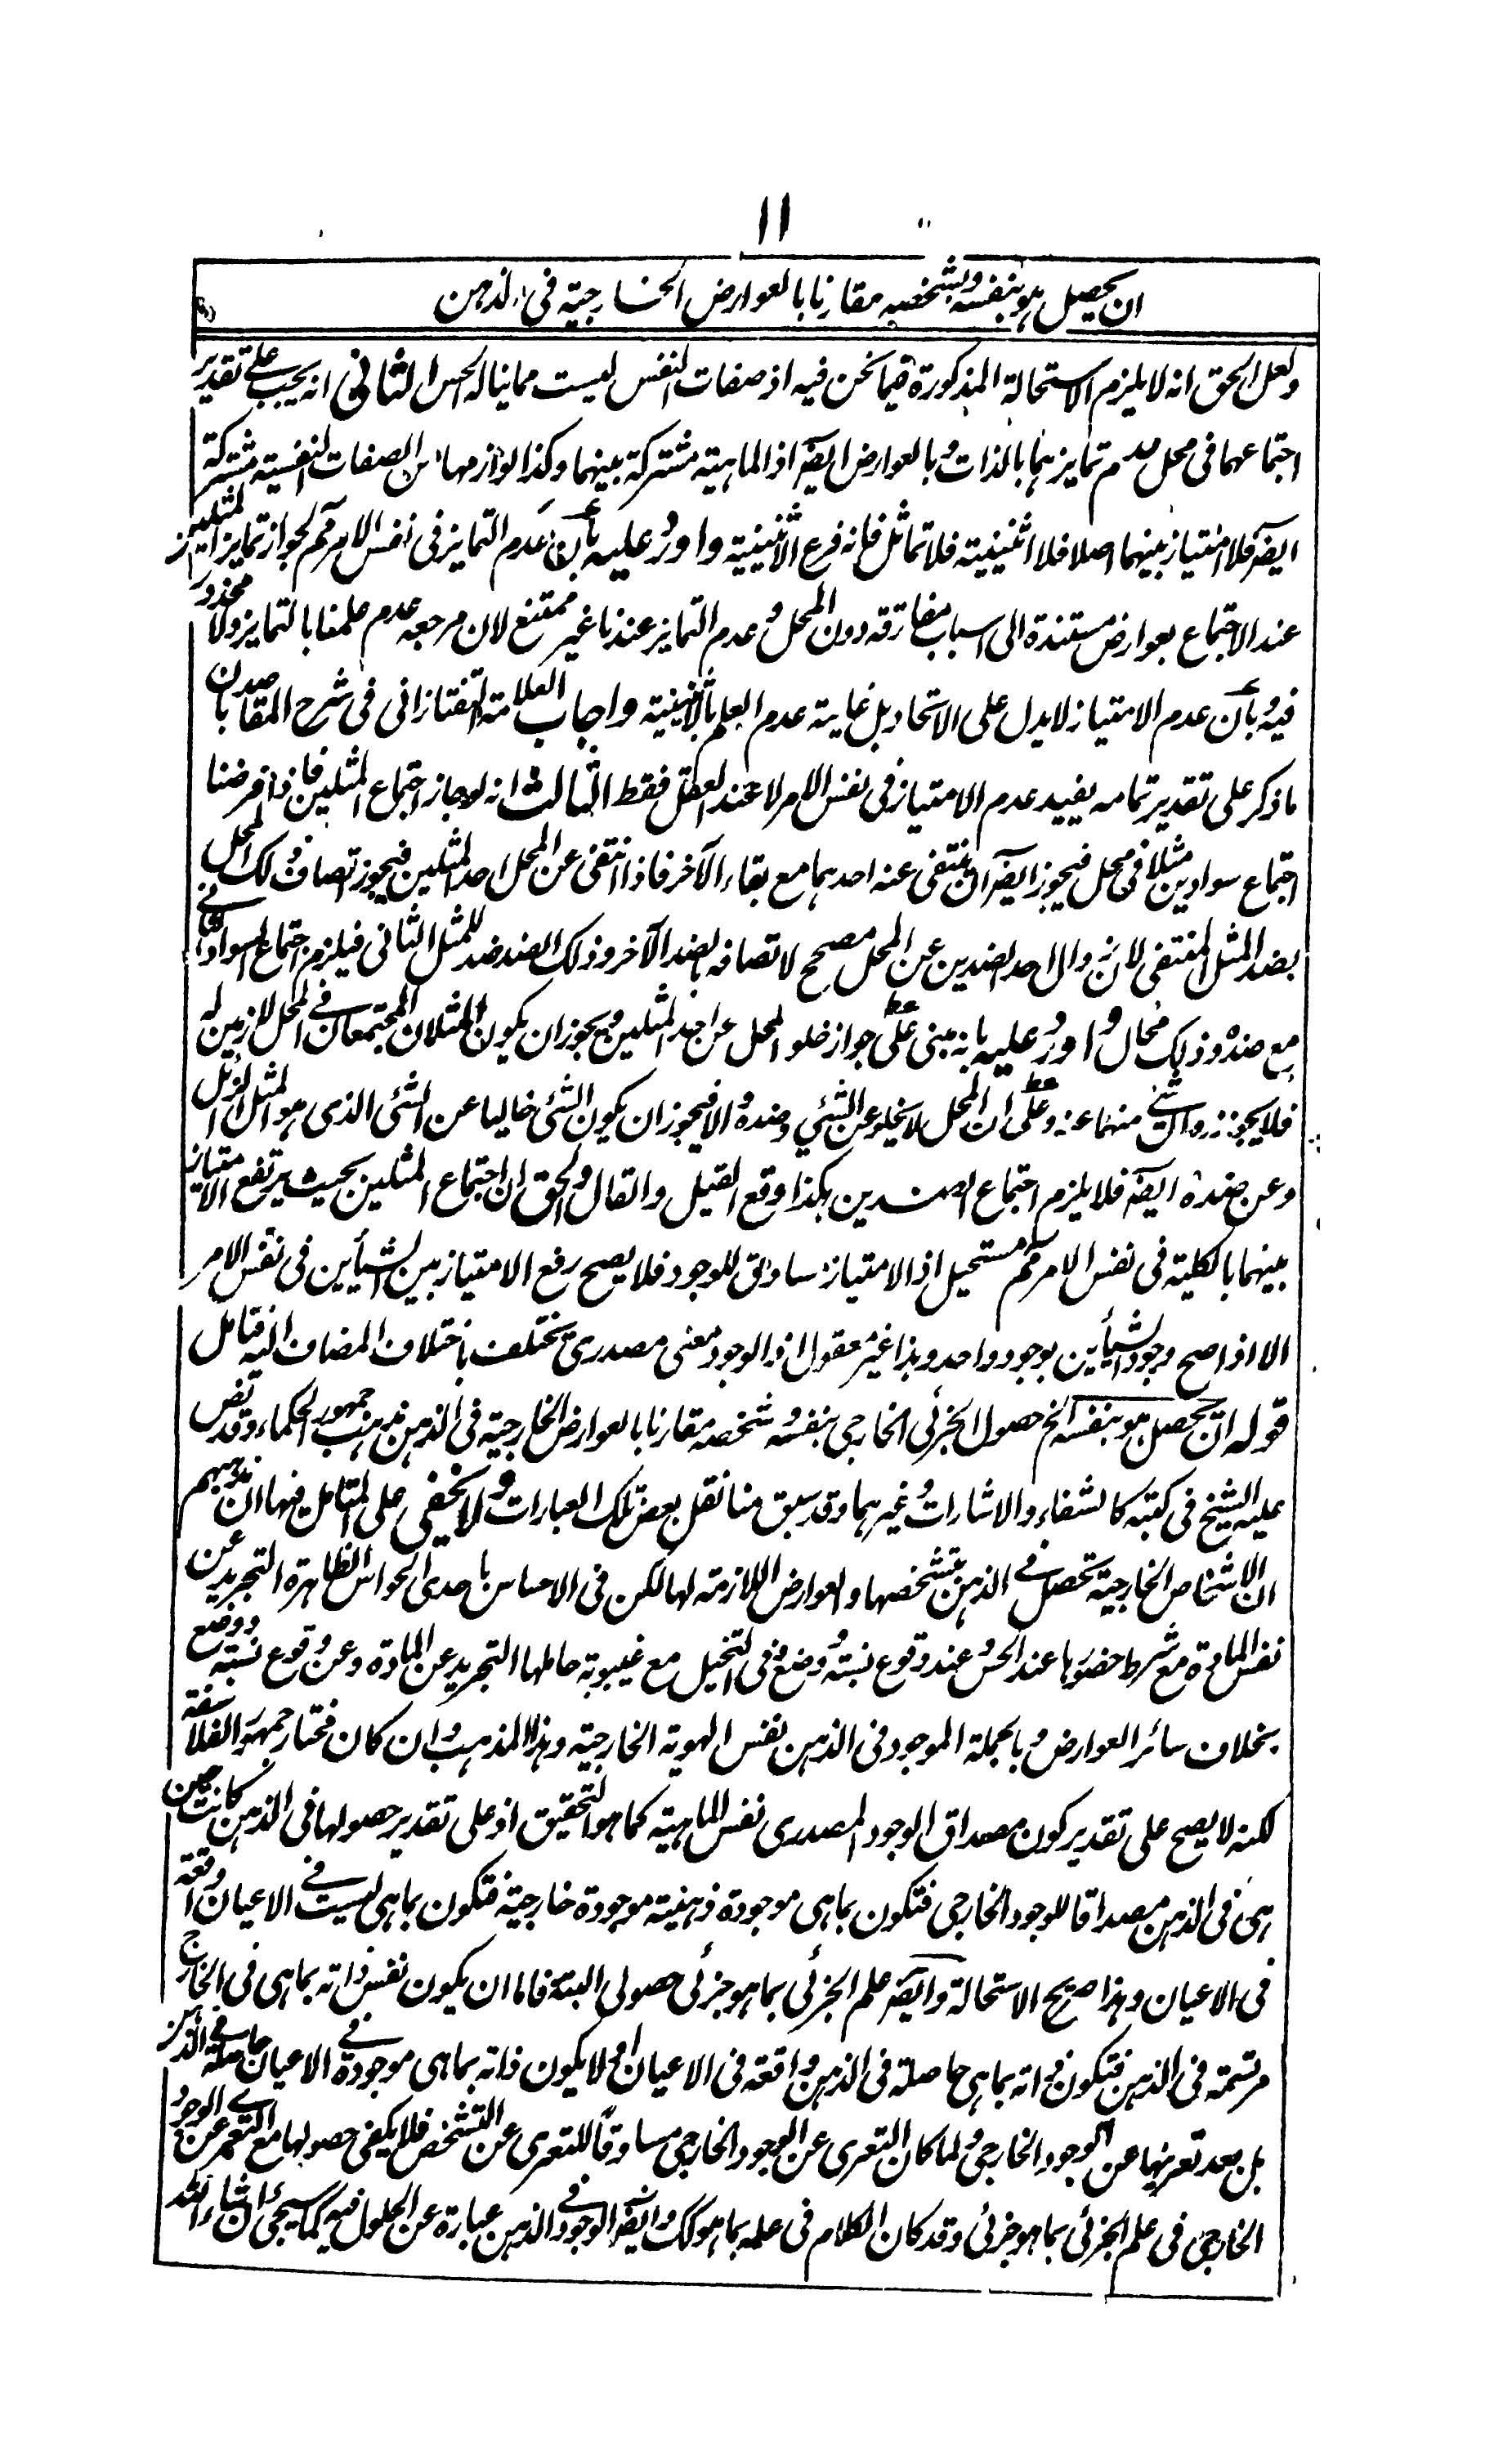 ١١
ان يحصل هو بنفسه وبشخصه مقارنا بالعوارض الخارجية فى الذهن
ولعل الحق انه لا يلزم الاستحالة المذكورة فيما نحن فيه اذ صفات النفس ليست مما يناله الحس الثانى انه يجب على تقدير
اجتماعهما فى محل عدم تمايزهما بالذات وبالعوارض ايضا اذ الماهية مشتركة بينهما وكذا لوازمها من الصفات النفسية مشتركة
ايضا فلا امتياز بينهما اصلا فلا اثنينية فلا تماثل فانه فرع الاثنينية واورد عليه بان عدم التمايز فى نفس الامر مم لجواز تمايز المثلين
عند الاجتماع بعوارض مستندة الى اسباب مفارقه دون المحل وعدم التمايز عندنا غير ممتنع لان مرجعه عدم علمنا بالتمايز ولا محذور
فيه وبأن عدم الامتياز لا يدل على الاتحاد بل غاية عدم العلم بالاثنينية واجاب العلامة التفتازانى فى شرح المقاصد بان
ما ذكر على تقدير تمامه يفيد عدم الامتياز فى نفس الامر لا عند العقل فقط الثالث انه لو جاز اجتماع المثلين فاذا فرضنا
اجتماع سوادين مثلا فى محل فيجوز ايضا ان ينتفى عنه احدهما مع بقاء الآخر فاذا انتفى عن المحل احد المثلين فيجوز اتصاف ذلك المحل
بضد المثل المنتفى لان زوال احد الضدين عن المحل مصحح لاتصافه بالضد الآخر وذلك الضد ضد للمثل الثانى فيلزم اجتماع السواد الثانى
مع ضده وذلك محال واورد عليه بانه مبنى على جواز خلو المحل عن احد المثلين ويجوز ان يكون المثلان المجتمعان فى المحل لازمين له
فلا يجوز زوال شئ منهما عنه وعلى ان المحل لا يخلو عن الشئ وضده والا فيجوز ان يكون الشئ خاليا عن الشئ الذى هو المثل الزائل
وعن ضده ايضا فلا يلزم اجتماع الضدين هكذا وقع القيل والقال والحق ان اجتماع المثلين بحيث يرتفع الامتياز
بينهما بالكلية فى نفس الامر مم مستحيل اذ الامتياز مساوق للوجود فلا يصح رفع الامتياز بين الشيأين فى نفس الامر
الا اذا صح وجود الشيأين بوجود واحد وهذا غير معقول اذ الوجود معنى مصدرى يختلف باختلاف المضاف اليه فتامل
قوله ان يحصل هو بنفسه الخ حصول الجزئى الخارجى بنفسه وشخصه مقارنا بالعوارض الخارجية فى الذهن مذهب جمهور الحكماء وقد نص
عليه الشيخ فى كتبه كالشفاء والاشارات وغيرهما وقد سبق منا نقل بعض تلك العبارات ولا يخفى على المتامل فيها ان مذهبهم
ان الاشخاص الخارجية تحصل فى الذهن بتشخصها والعوارض اللازمة لها لكن فى الاحساس باحدى الحواس الظاهرة التجريد عن
نفس المادة مع شرط حضورها عند الحس عند وقوع نسبة وضع وفى التخيل مع غيبوبة حاملها التجريد عن المادة وعن وقوع نسبة ووضع
بخلاف سائر العوارض وبالجملة الموجود فى الذهن نفس الهوية الخارجية وهذا المذهب وان كان مختار جمهور الفلاسفة
لكنه لا يصح على تقدير كون مصداق الوجود المصدرى نفس الماهية كما هو التحقيق اذ على تقدير حصولها فى الذهن كانت حين
هى فى الذهن مصداقا للوجود الخارجى فتكون بما هى موجودة ذهنية موجودة خارجية فتكون بما هى ليست فى الاعيان واقعة
فى الاعيان وهذا صريح الاستحالة وايضا علم الجزئى بما هو جزئى حصولى البتة فاما ان يكون نفس ذاته بما هى فى الخارج
مرتسمة فى الذهن فتكون ذاته بما هى حاصلة فى الذهن واقعة فى الاعيان او لا يكون ذاته بما هى موجودة فى الاعيان حاصلة فى الذهن
بل بعد تعريتها عن الوجود الخارجى ولما كان التعرى عن الوجود الخارجى مساوقا للتعرى عن التشخص فلا يكفى حصولها مع التعرى عن الوجود
الخارجى فى علم الجزئى بما هو جزئى وقد كان الكلام فى علمه بما هو كك وايضا الوجود فى الذهن عبارة عن الحلول فيه كما سيجئ ان شاء الله